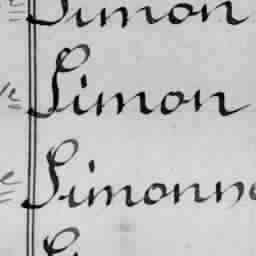 Simon
Simon
Simonne